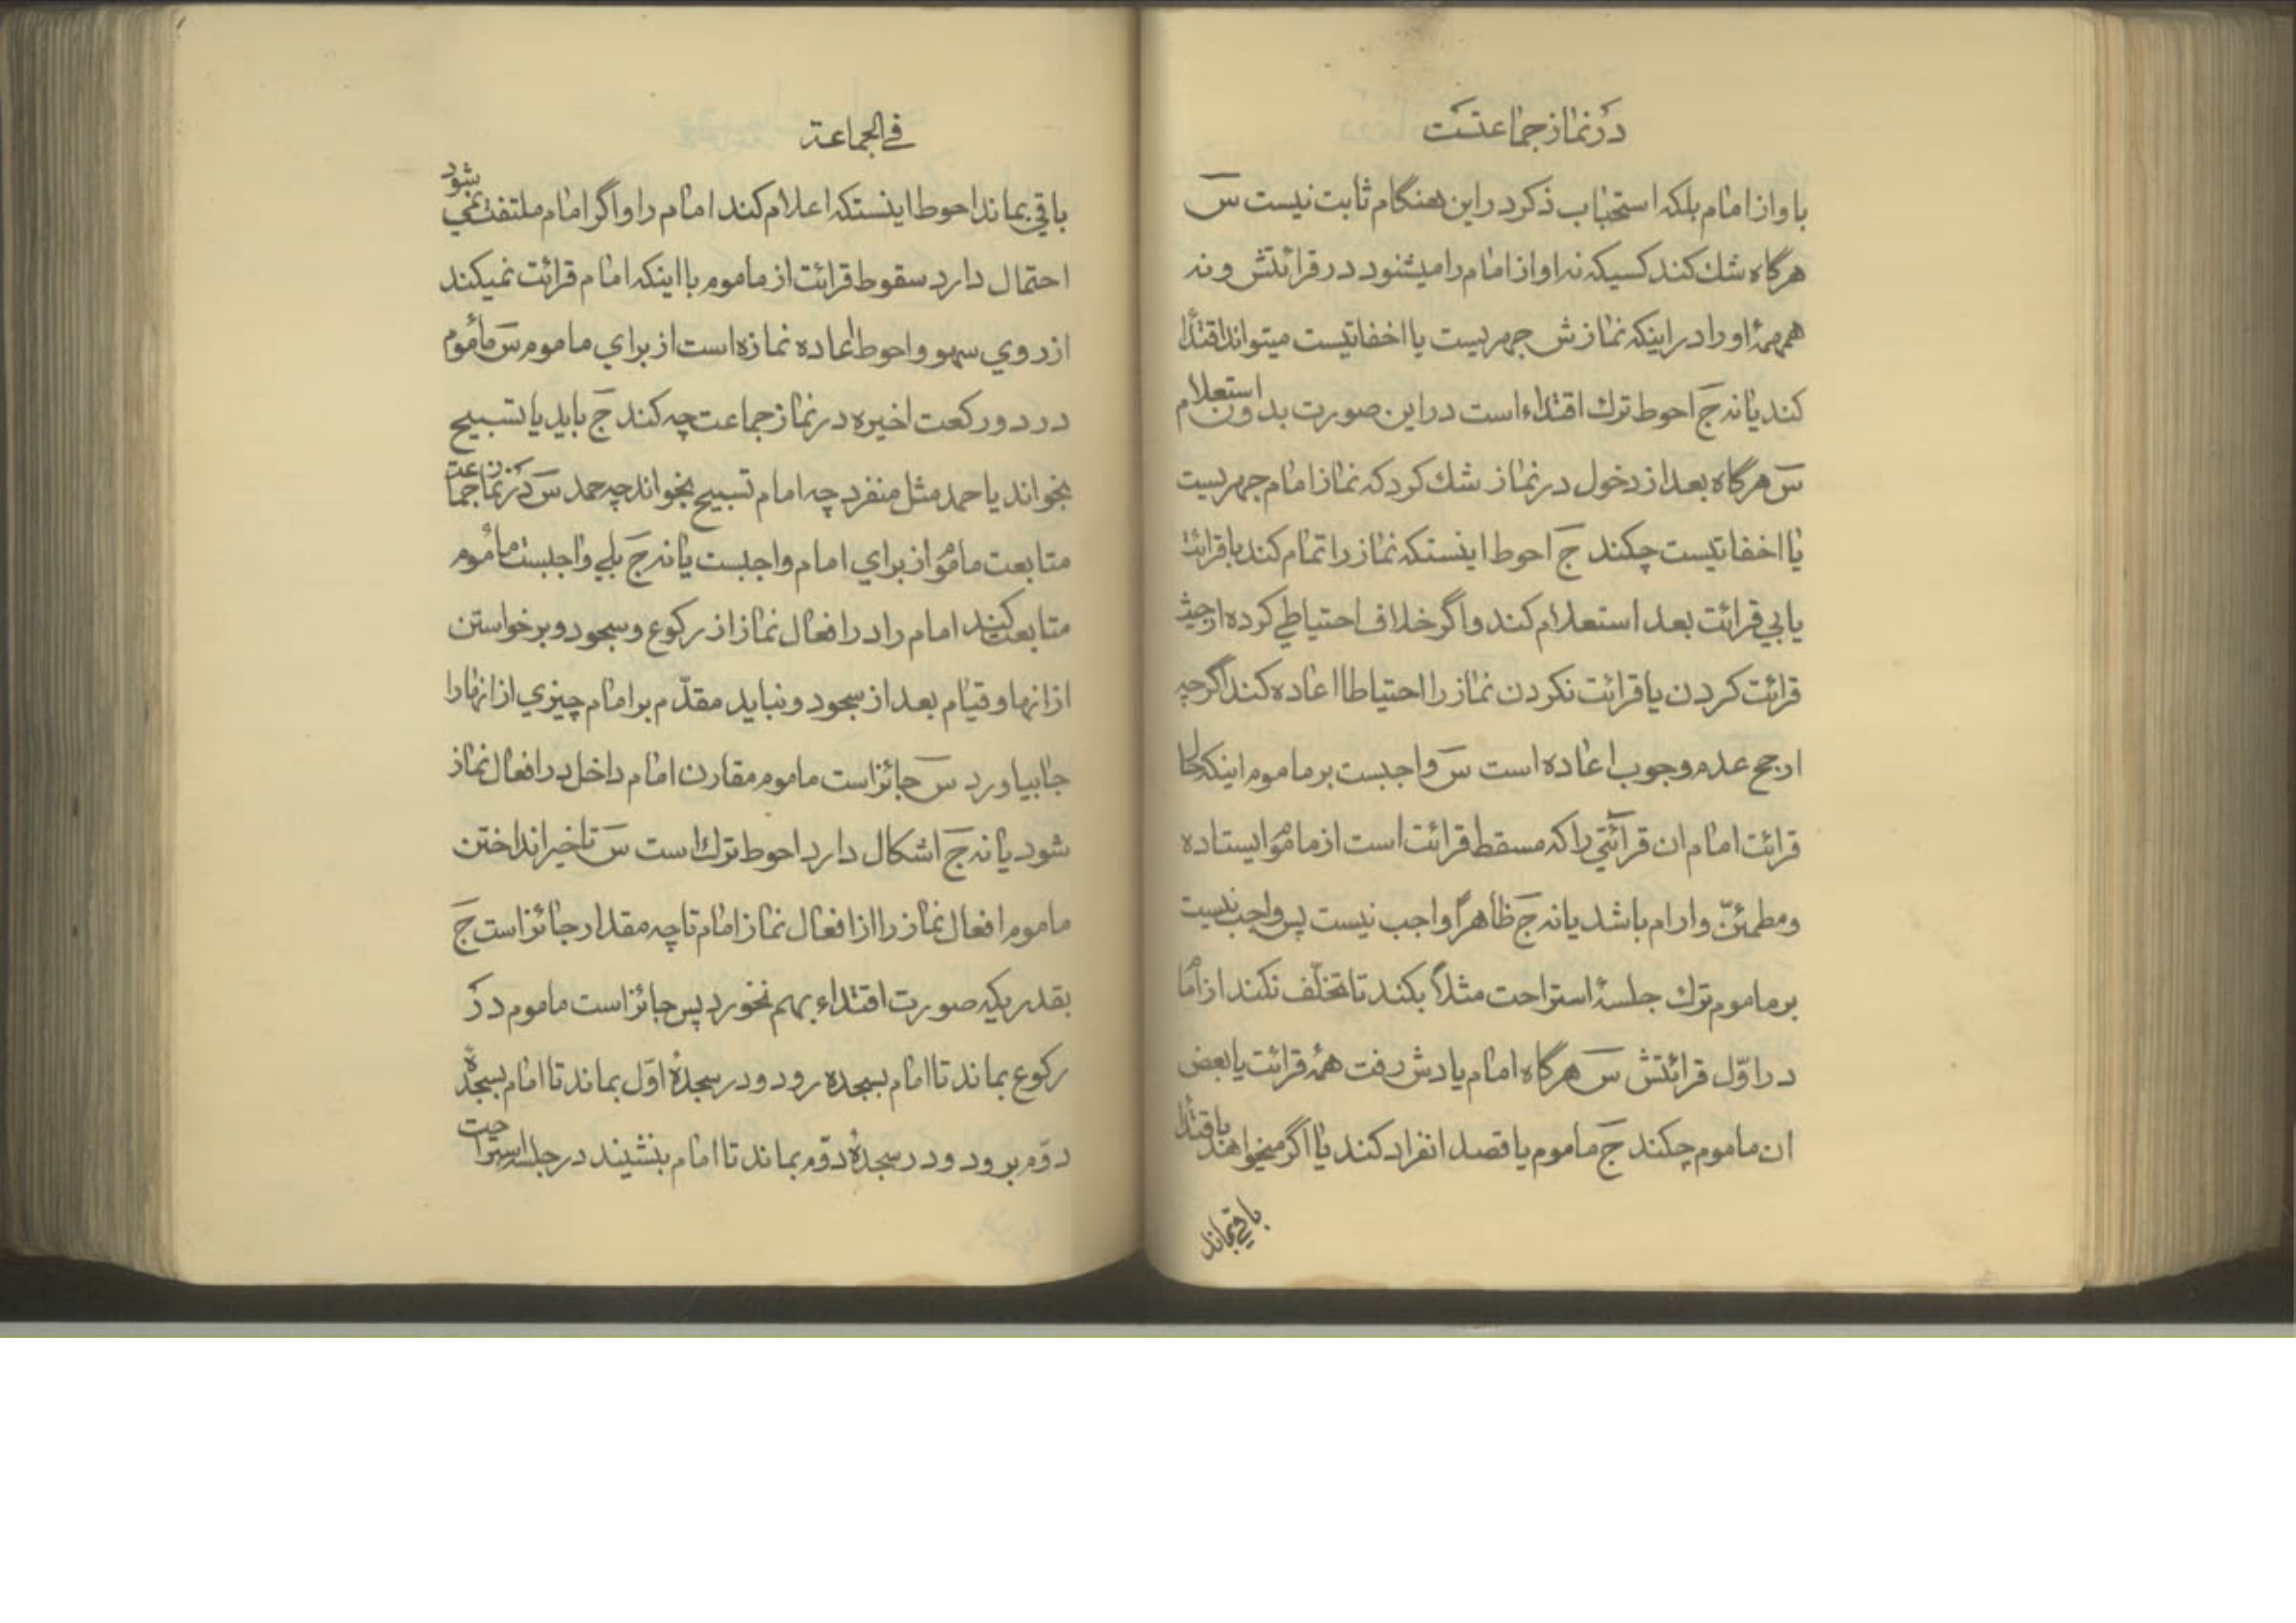 در نماز جماعتست
باواز امام بلکه استحباب ذکر در این هنگام ثابت نیست سَ
هرگاه شك کند کسیکه نه اواز امام را میشنود در قرائتش و نه
همهمهٔ او را در اینکه نمازش جهریست یا اخفاتیست میتواند اقتدا
کند یا نه جَ احوط ترك اقتداء است در این صورت بدون استعلام
سَ هرگاه بعد از دخول در نماز شك کرد که نماز امام جهریست
یا اخفاتیست چکند جَ احوط اینستکه نماز را تمام کند با قرائت
یا بي قرائت بعد استعلام کند و اگر خلاف احتیاطي کرده از حیث
قرائت کردن یا قرائت نکردن نماز را احتیاطا اعاده کند اگرچه
ارجح عدم وجوب اعاده است سَ واجبست بر ماموم اینکه
قرائت امام ان قرائتي را که مسقط قرائت است از ماموم ایستاده
و مطمئنّ و ارام باشد یا نه جَ ظاهرًا واجب نیست پس واجب نیست
بر ماموم ترك جلسهٔ استراحت مثلاً بکند تا تخلّف نکند از امام
در اوّل قرائتش سَ هرگاه امام یادش رفت همهٔ قرائت یا بعض
ان ماموم چکند جَ ماموم یا قصد انفراد کند یا اگر میخواهند باقتدا
باقي بماند
في الجماعة
باقي بماند احوط اینستکه اعلام کند امام را و اگر امام ملتفت نمي بشود
احتمال دارد سقوط قرائت از ماموم با اینکه امام قرائت نمیکند
از روي سهو و احوط اعاده نمازه است از براي ماموم سَ مأموم
در دو رکعت اخیره در نماز جماعت چه کند جَ باید یا تسبیح
بخواند یا حمد مثل منفرد چه امام تسبیح بخواند چه حمد سَ در نماز جماعت
متابعت ماموم از براي امام واجبست یا نه جَ بلي واجبست مأموم
متابعت کند امام را در افعال نماز از رکوع و سجود و برخواستن
از انها و قیام بعد از سجود و نباید مقدّم بر امام چیزي از انها را
جا بیاورد سَ جائز است ماموم مقارن امام داخل در افعال نماز
شود یا نه جَ اشکال دارد احوط ترك است سَ تاخیر انداختن
ماموم افعال نماز را از افعال نماز امام تا چه مقدار جائز است جَ
بقدریکه صورت اقتداء بهم نخورد پس جائز است ماموم در
رکوع بماند تا امام بسجده رود و در سجدهٔ اوّل بماند تا امام بسجدهٔ
دوّم برود و در سجدهٔ دوّم بماند تا امام بنشیند در جلسهٔ استراحت